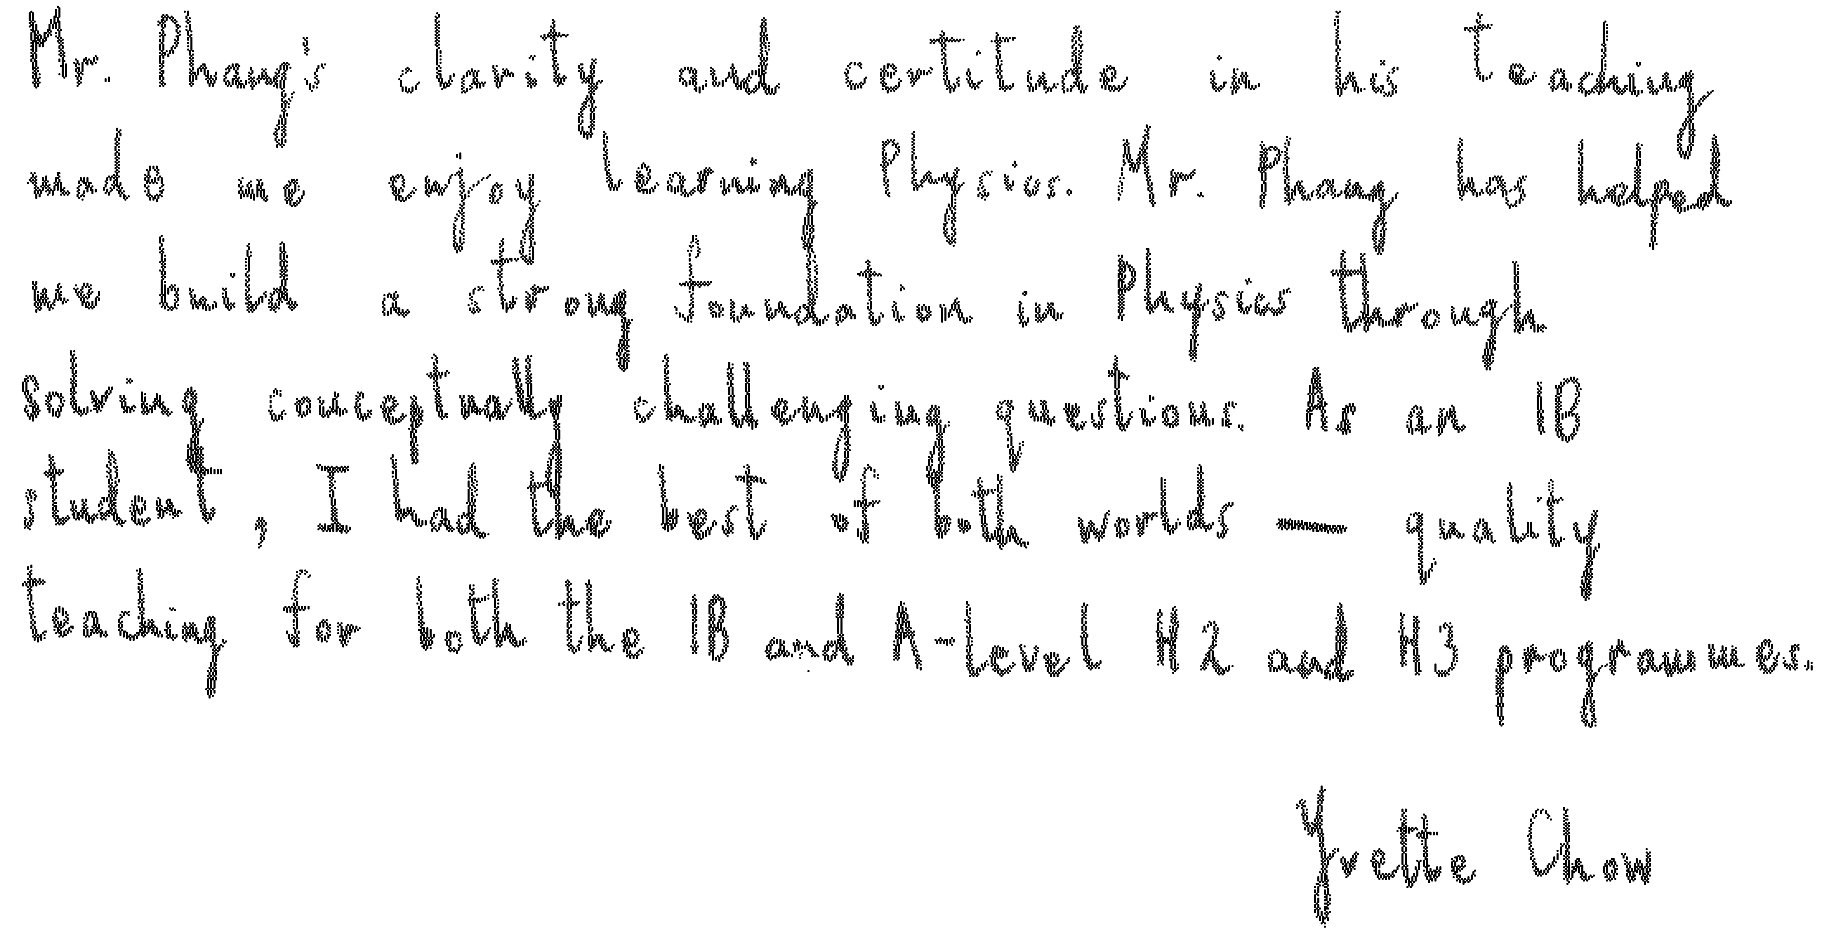 Mr. Phang's clarity and certitude in his teaching
made me enjoy learning Physics. Mr. Phang has helped
me build a strong foundation in Physics through
solving conceptually challenging questions. As an IB
student, I had the best of both worlds — quality
teaching for both the IB and A-level H2 and H3 programmes.
Yvette Chow